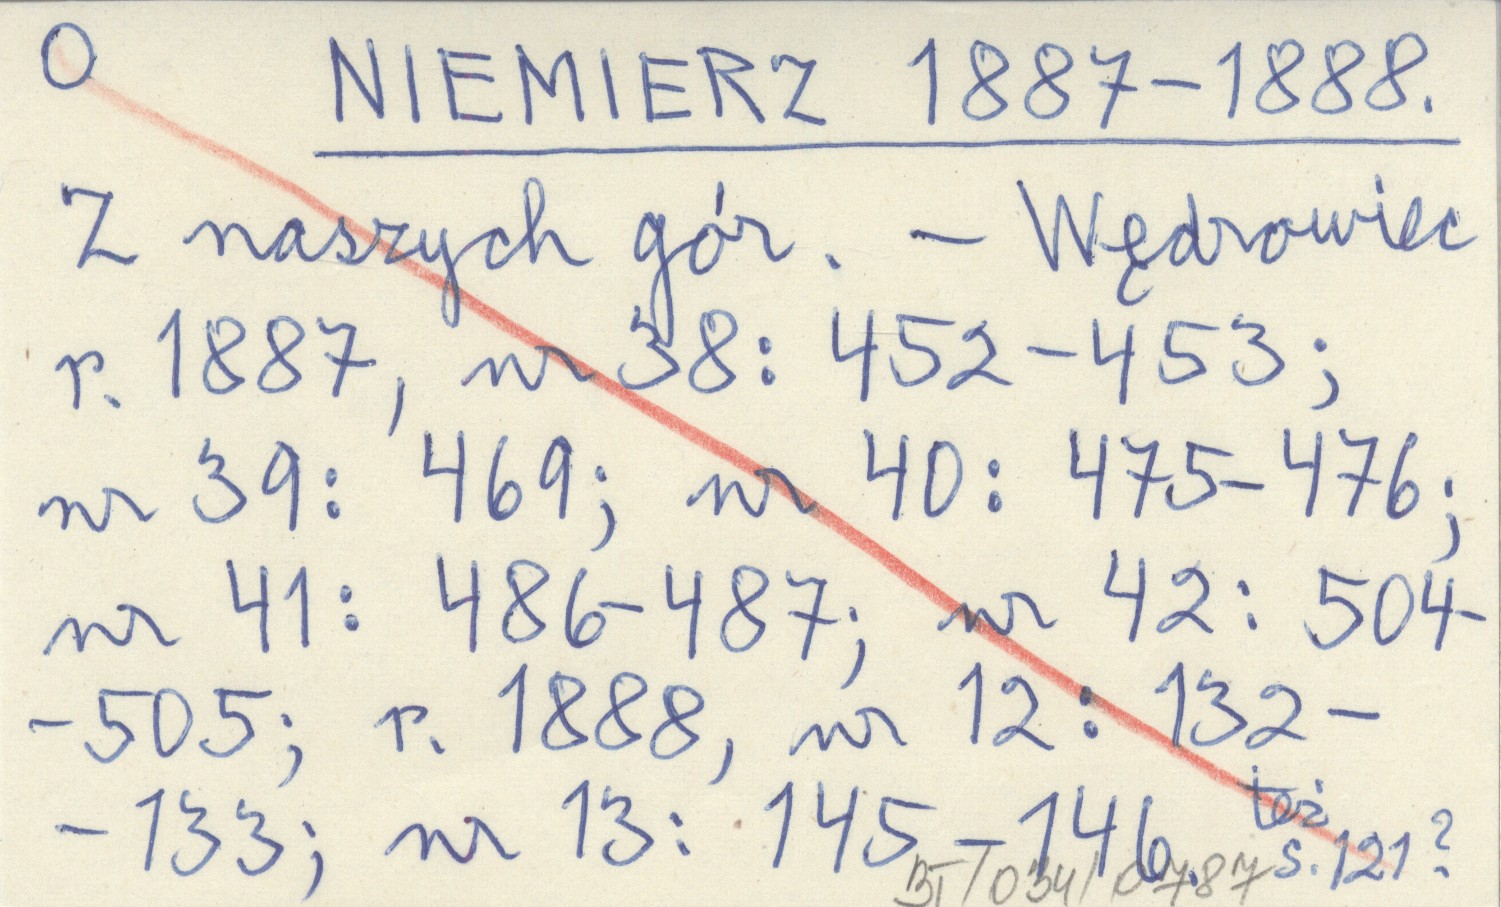 O NIEMIERZ 1887-1888.
Z naszych gór. - Wędrowiec
r. 1887, nr 38: 452-453;
nr 39: 469; nr 40: 475-476;
nr 41: 486-487; nr 42: 504-
-505; r. 1888, nr 12: 132-
-133; nr 13: 145-146.
też
s. 121?
BT/034/0787